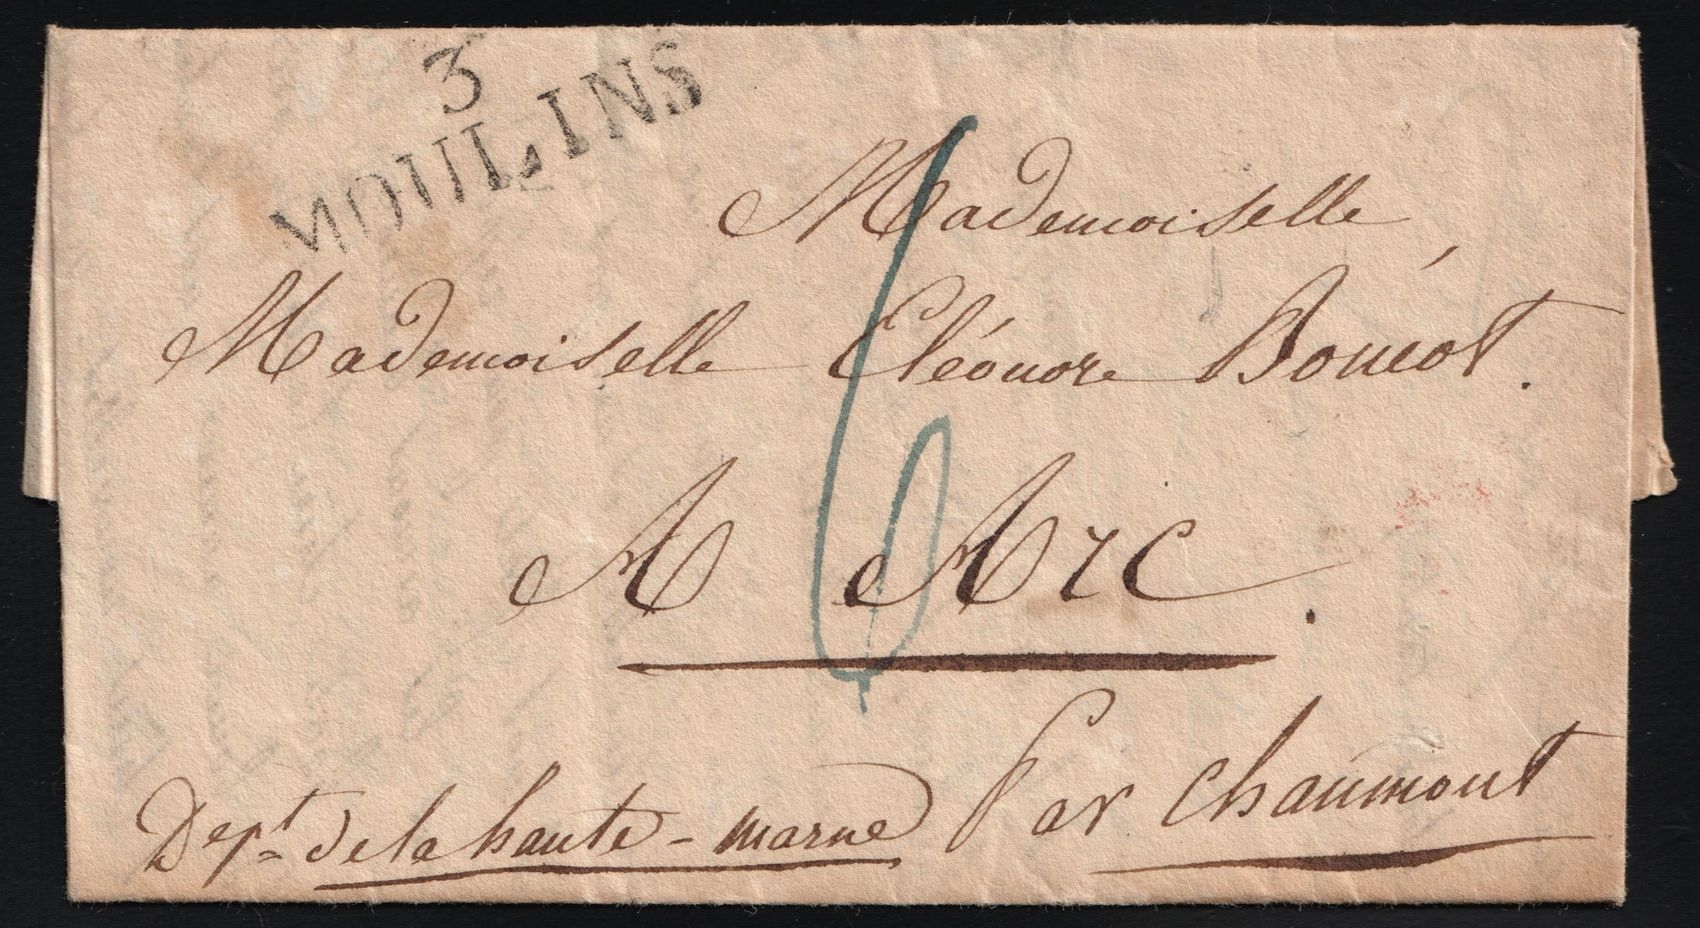 3
MOULINS
Mademoiselle,
Mademoiselle Eléonore Boucot.
A Arc.
Dept. de la haute-marne Par Chaumont
6